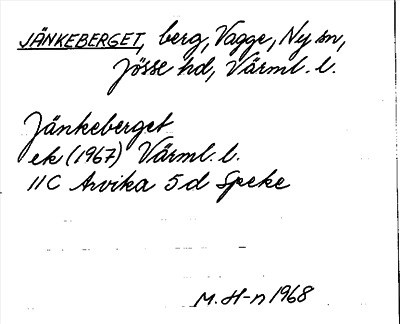 JÄNKEBERGET, berg, Vagge, Ny sn,
Jösse hd, Värml. l.
Jänkeberget
ek (1967) Värml. l.
11C Arvika 5d Speke
M. H-n 1968